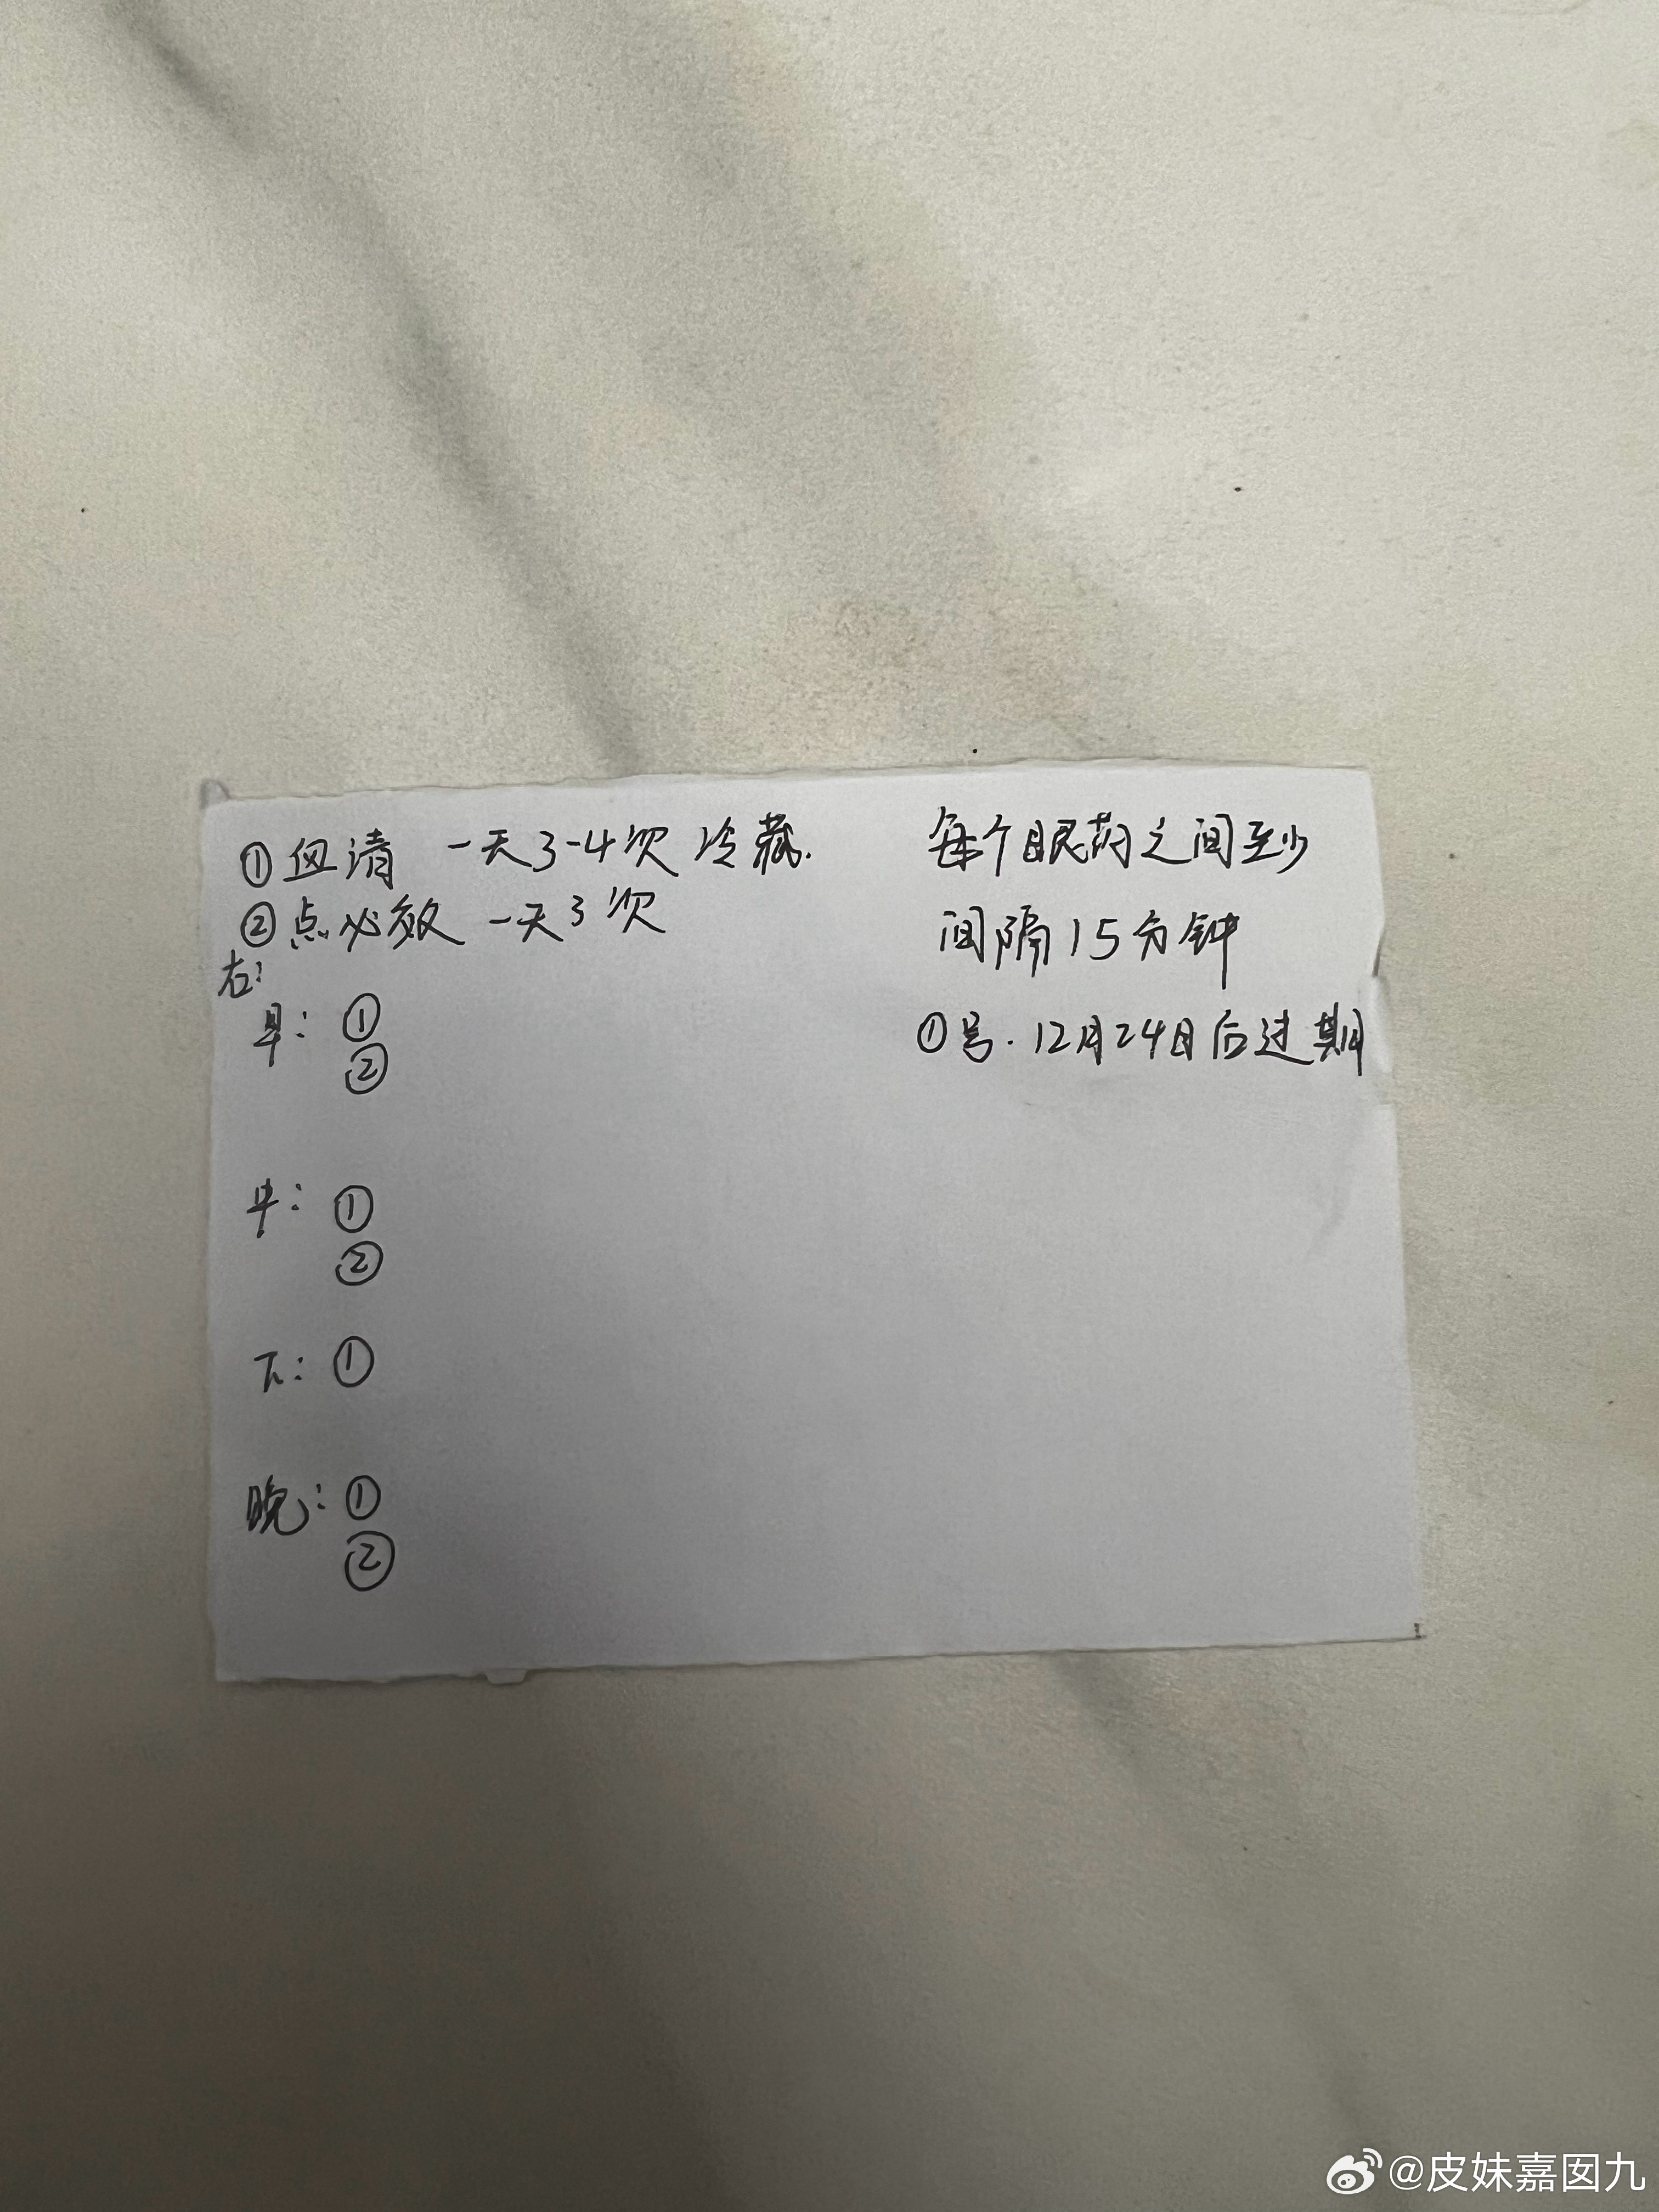 ①血清 一天3-4次 冷藏.
②点必效 一天3次
右:
早: ①
②
中: ①
②
下: ①
晚: ①
②
每个眼药之间至少
间隔15分钟
①号. 12月24日后过期
@皮妹嘉囡九